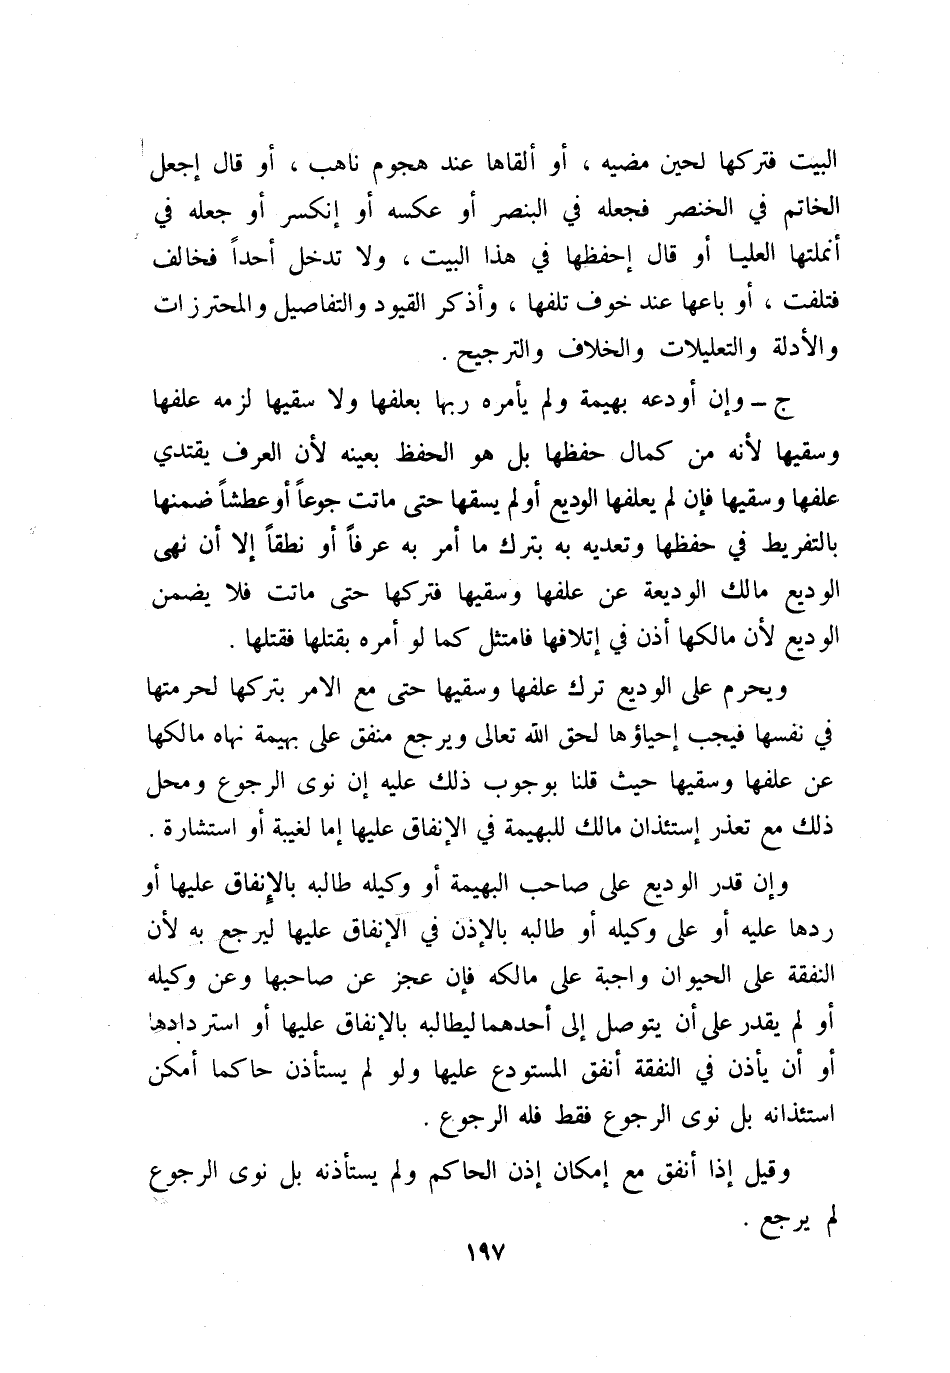 البيت فتركها لحين مضيه ، أو ألقاها عند هجوم ناهب ، أو قال إجعل
الخاتم في الخنصر فجعله في البنصر أو عكسه أو إنكسر أو جعله في
أنملتها العليا أو قال إحفظها في هذا البيت ، ولا تدخل أحداً فخالف
فتلفت ، أو باعها عند خوف تلفها ، وأذكر القيود والتفاصيل والمحترزات
والأدلة والتعليلات والخلاف والترجيح .
ج ـ وإن أودعه بهيمة ولم يأمره ربها بعلفها ولا سقيها لزمه علفها
وسقيها لأنه من كمال حفظها بل هو الحفظ بعينه لأن العرف يقتدي
علفها وسقيها فإن لم يعلفها الوديع أو لم يسقها حتى ماتت جوعاً أو عطشاً ضمنها
بالتفريط في حفظها وتعديه به بترك ما أمر به عرفاً أو نطقاً إلا أن نهى
الوديع مالك الوديعة عن علفها وسقيها فتركها حتى ماتت فلا يضمن
الوديع لأن مالكها أذن في إتلافها فامتثل كما لو أمره بقتلها فقتلها .
ويحرم على الوديع ترك علفها وسقيها حتى مع الامر بتركها لحرمتها
في نفسها فيجب إحياؤها لحق الله تعالى ويرجع منفق على بهيمة نهاه مالكها
عن علفها وسقيها حيث قلنا بوجوب ذلك عليه إن نوى الرجوع ومحل
ذلك مع تعذر إستئذان مالك للبهيمة في الإنفاق عليها إما لغيبة أو استشارة .
وإن قدر الوديع على صاحب البهيمة أو وكيله طالبه بالإنفاق عليها أو
ردها عليه أو على وكيله أو طالبه بالإذن في الإنفاق عليها ليرجع به لأن
النفقة على الحيوان واجبة على مالكه فإن عجز عن صاحبها وعن وكيله
أو لم يقدر على أن يتوصل إلى أحدهما ليطالبه بالإنفاق عليها أو استردادها
أو أن يأذن في النفقة أنفق المستودع عليها ولو لم يستأذن حاكما أمكن
استئذانه بل نوى الرجوع فقط فله الرجوع .
وقيل إذا أنفق مع إمكان إذن الحاكم ولم يستأذنه بل نوى الرجوع
لم يرجع .
١٩٧